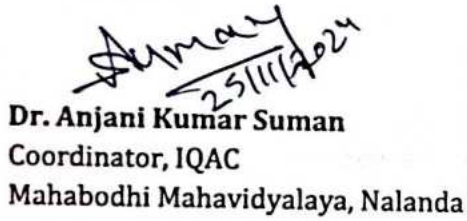 Suman
25/11/2024
Dr. Anjani Kumar Suman
Coordinator, IQAC
Mahabodhi Mahavidyalaya, Nalanda